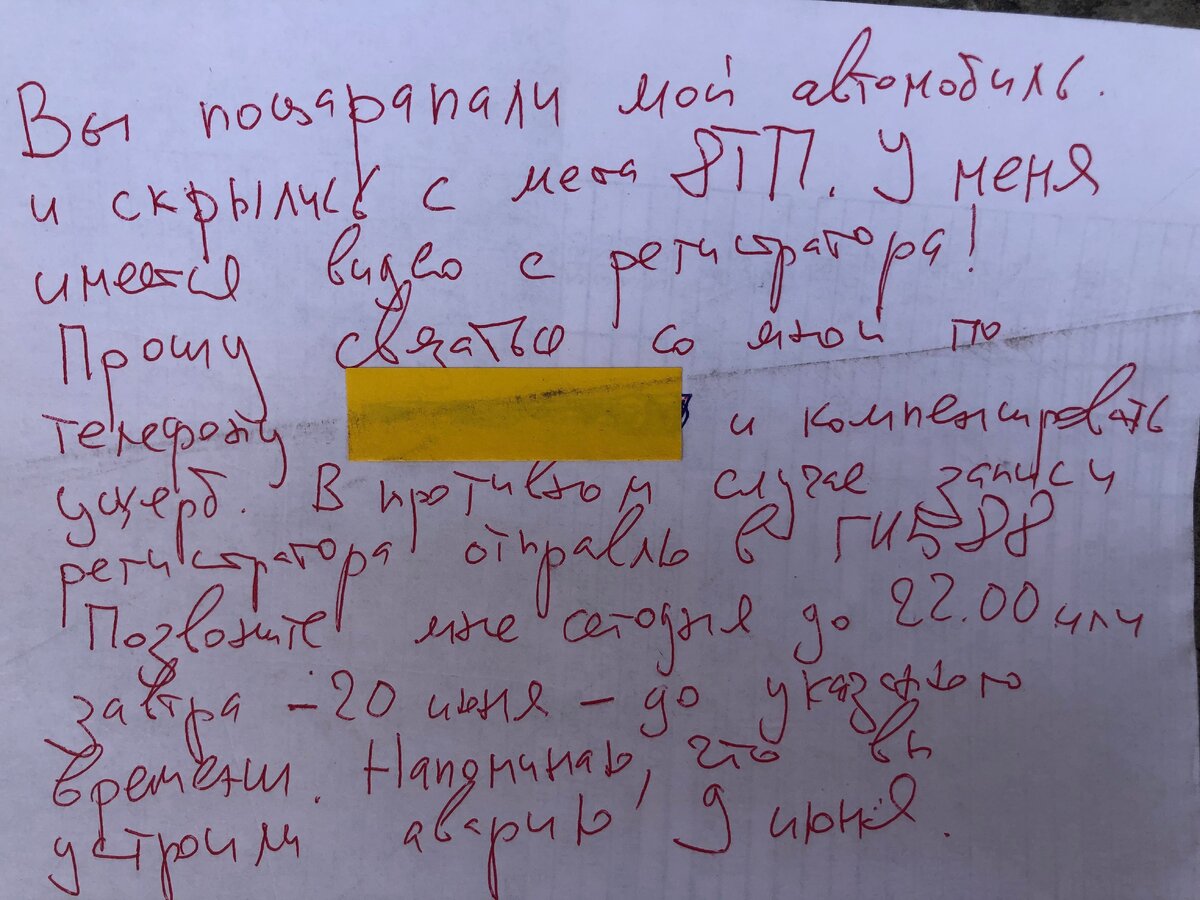 Вы поцарапали мой автомобиль.
и скрылись с места ДТП. У меня
имеется видео с регистратора!
Прошу связаться со мной по
телефону и компенсировать
ущерб. В противном случае записи
регистратора отправлю в ГИБДД
Позвоните мне сегодня до 22.00 или
завтра - 20 июня - до указанного
времени. Напоминаю, что вы
устроили аварию 9 июня.